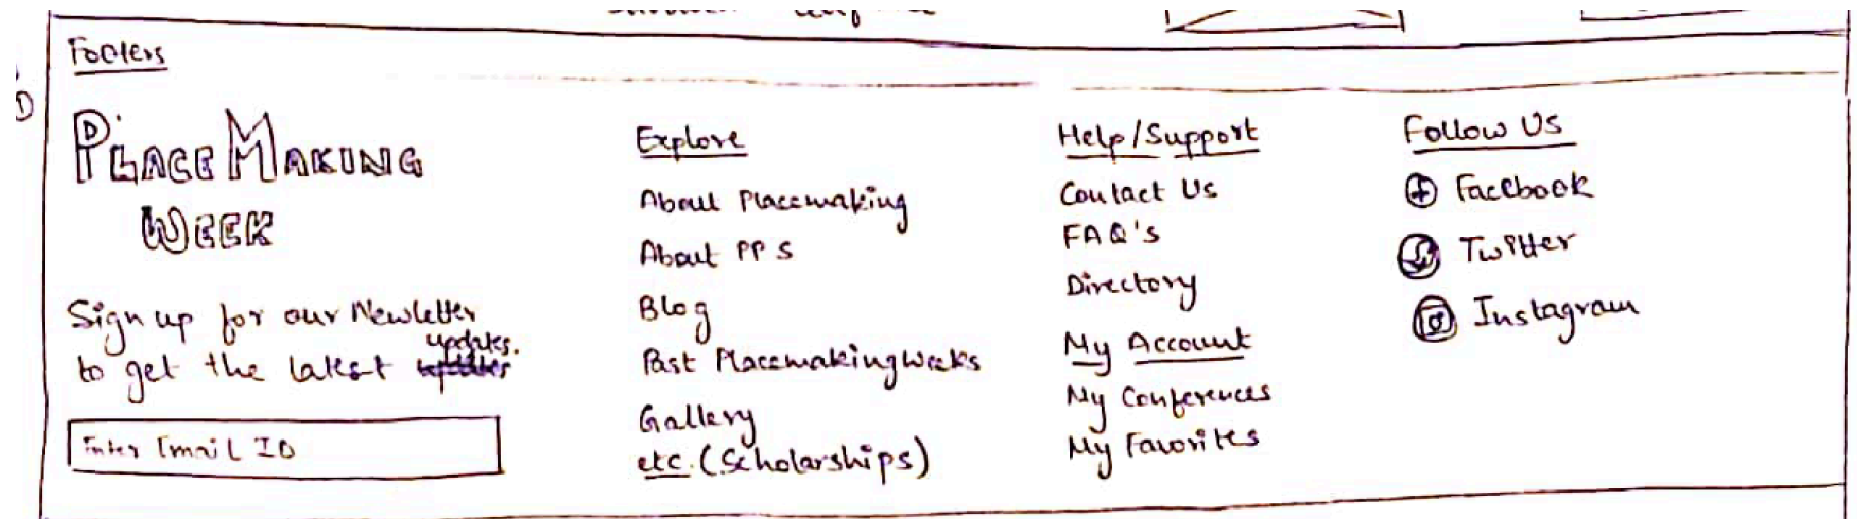 Footers
PLACE MAKING
WEEK
Sign up for our Newletter
to get the latest updates.
Enter Email ID
Explore
About Placemaking
About PPS
Blog
Past Placemaking Weeks
Gallery
etc. (Scholarships)
Help/Support
Contact Us
FAQ's
Directory
My Account
My Conferences
My Favorites
Follow Us
Facebook
Twitter
Instagram